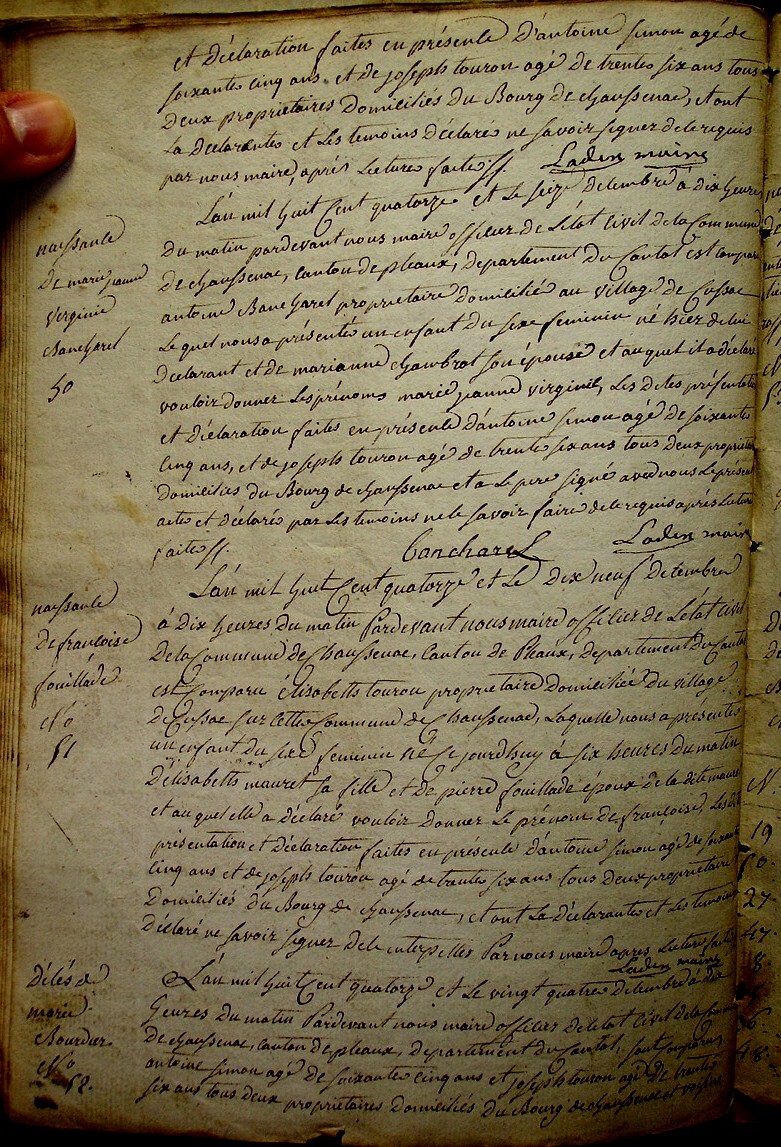 et déclaration faites en présence d'antoine simon agé de
soixante cinq ans et de joseph touron agé de trente six ans tous
deux propriétaires domiciliés du Bourg de chaussenac, et ont
la déclarante et les temoins déclaré ne savoir signer de ce requis
par nous maire, aprés lecture faite ff. Laden maire
L'an mil huit Cent quatorze et le seize decembre à dix heures
naissance
du matin pardevant nous maire officier de L'état Civil de la Commune
de marie jeanne
de chaussenac, canton de pleaux, departement du Cantal est compar
virginie
antoine Bancharel propriétaire domicilié au village de Cussac
Bancharel
Lequel nous a présenté un enfant du sexe feminin né hier de lui
50
déclarant et de marianne chambrot son épouse et auquel il a déclaré
vouloir donner les prénoms marie jeanne virginie, les dites présentation
et déclaration faites en présence d'antoine simon agé de soixante
cinq ans, et de joseph touron agé de trente six ans tous deux propriétaires
domiciliés du Bourg de chaussenac et a le pere signé avec nous le présent
acte et déclaré par les temoins ne le savoir faire de ce requis aprés lecture
faite ff. Bancharel Laden maire
L'an mil huit Cent quatorze et le dix neuf decembre
naissance
à dix heures du matin Pardevant nous maire officier de L'état civil
de françoise
de la Commune de Chaussenac, Canton de Pleaux, departement du Cantal
fouillade
est Comparu élisabeth touron propriétaire domiciliée du village
No
de Cussac sur cette Commune de Chaussenac, Laquelle nous a présenté
51
un enfant du sexe feminin né ce jourdhuy à six heures du matin
d'élisabeth mauret sa fille et de pierre fouillade époux de la dite mauret
et auquel elle a déclaré vouloir donner le prénom de françoise, les dites
présentation et déclaration faites en présence d'antoine simon agé de soixante
cinq ans et de joseph touron agé de trente six ans tous deux propriétaire
domiciliés du Bourg de chaussenac, et ont la déclarante et les temoins
déclaré ne savoir signer de ce interpellés Par nous maire aprés lecture faite
Laden maire
L'an mil huit Cent quatorze et le vingt quatre decembre à dix
Décés de
heures du matin Pardevant nous maire officier de l'etat Civil de la commune
marie
de chaussenac, canton de pleaux, departement du Cantal, sont comparus
Bourdier
antoine simon agé de soixante cinq ans et joseph touron agé de trente
No
52.
six ans tous deux propriétaires domiciliés du Bourg de chaussenac et voisins
19
27
47
8